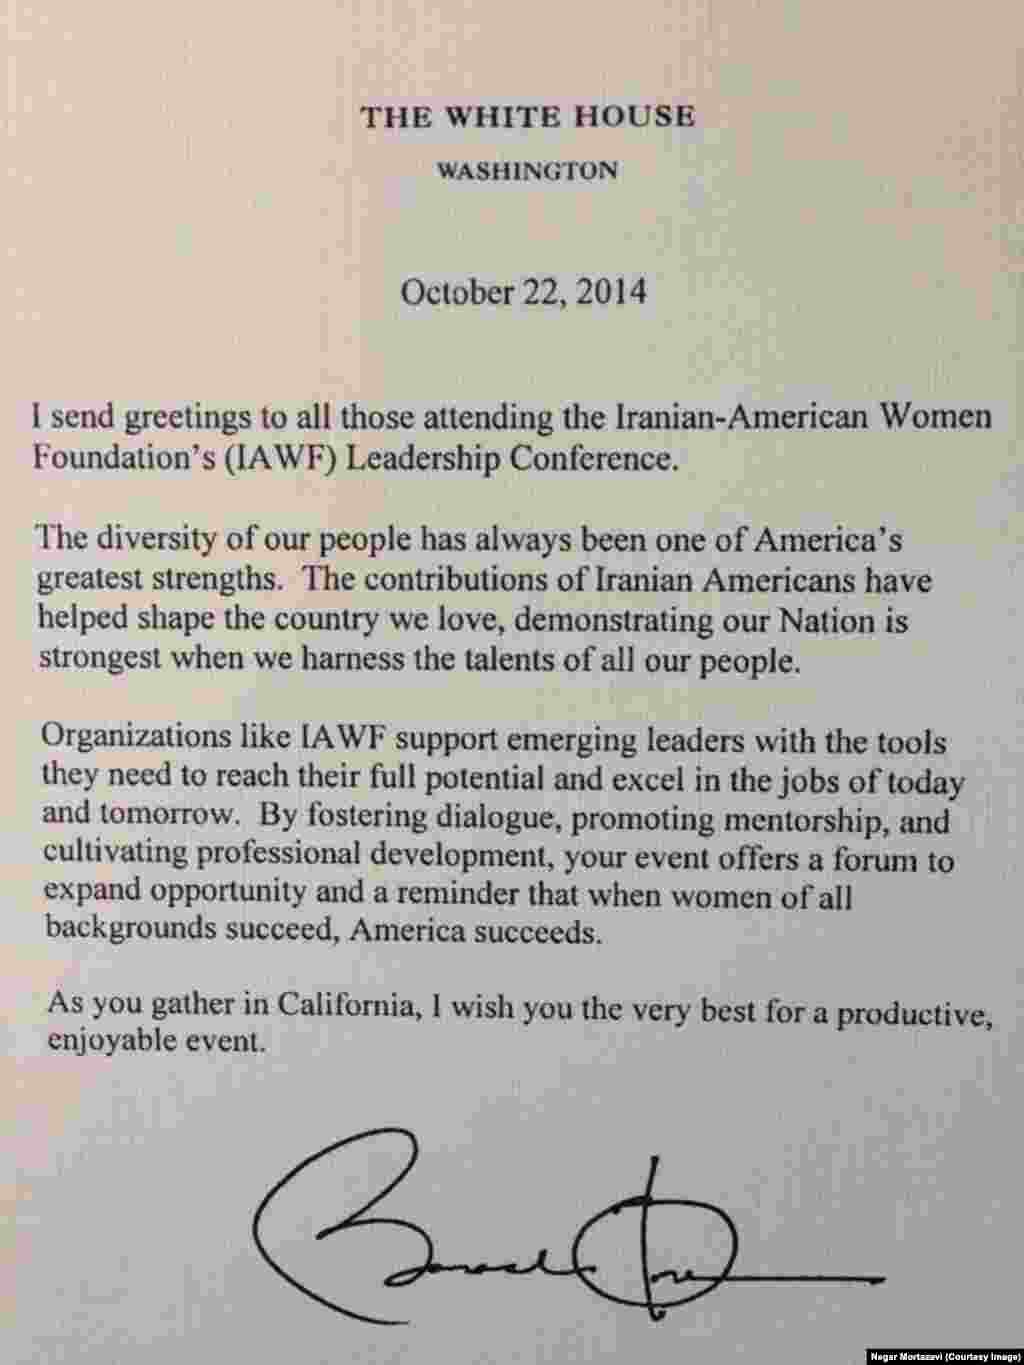 THE WHITE HOUSE
WASHINGTON
October 22, 2014
I send greetings to all those attending the Iranian-American Women
Foundation's (IAWF) Leadership Conference.
The diversity of our people has always been one of America's
greatest strengths. The contributions of Iranian Americans have
helped shape the country we love, demonstrating our Nation is
strongest when we harness the talents of all our people.
Organizations like IAWF support emerging leaders with the tools
they need to reach their full potential and excel in the jobs of today
and tomorrow. By fostering dialogue, promoting mentorship, and
cultivating professional development, your event offers a forum to
expand opportunity and a reminder that when women of all
backgrounds succeed, America succeeds.
As you gather in California, I wish you the very best for a productive,
enjoyable event.
Negar Mortazavi (Courtesy Image)